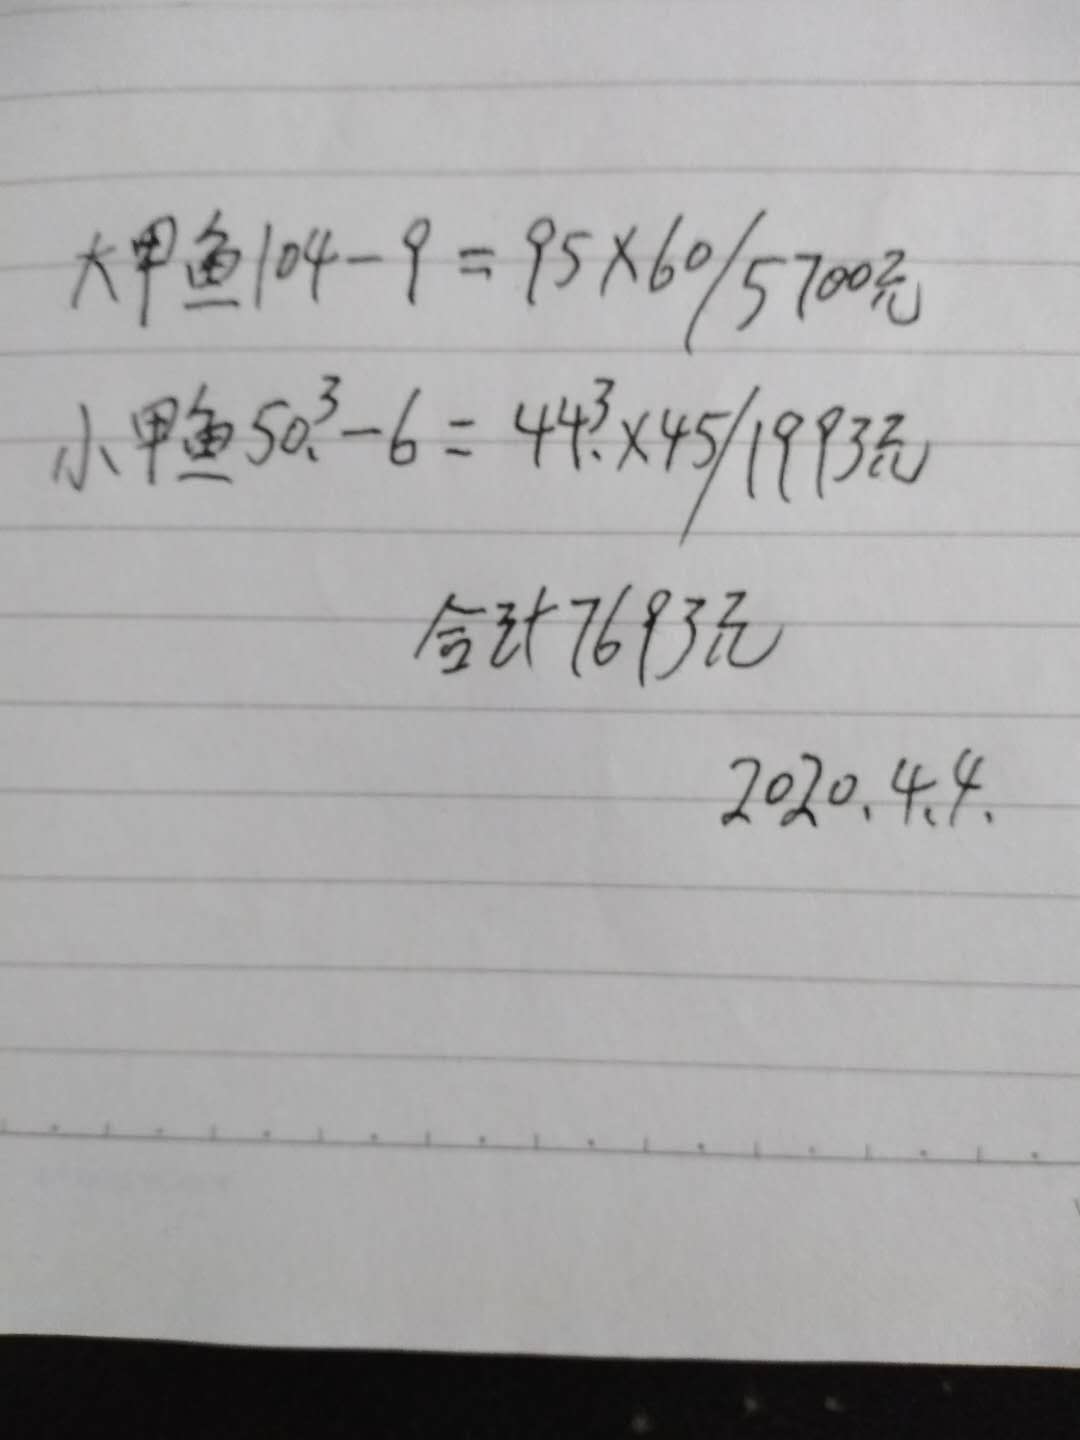 大甲鱼104-9=95×60/5700元
小甲鱼50.3-6=44.3×45/1993元
合计7693元
2020.4.4.